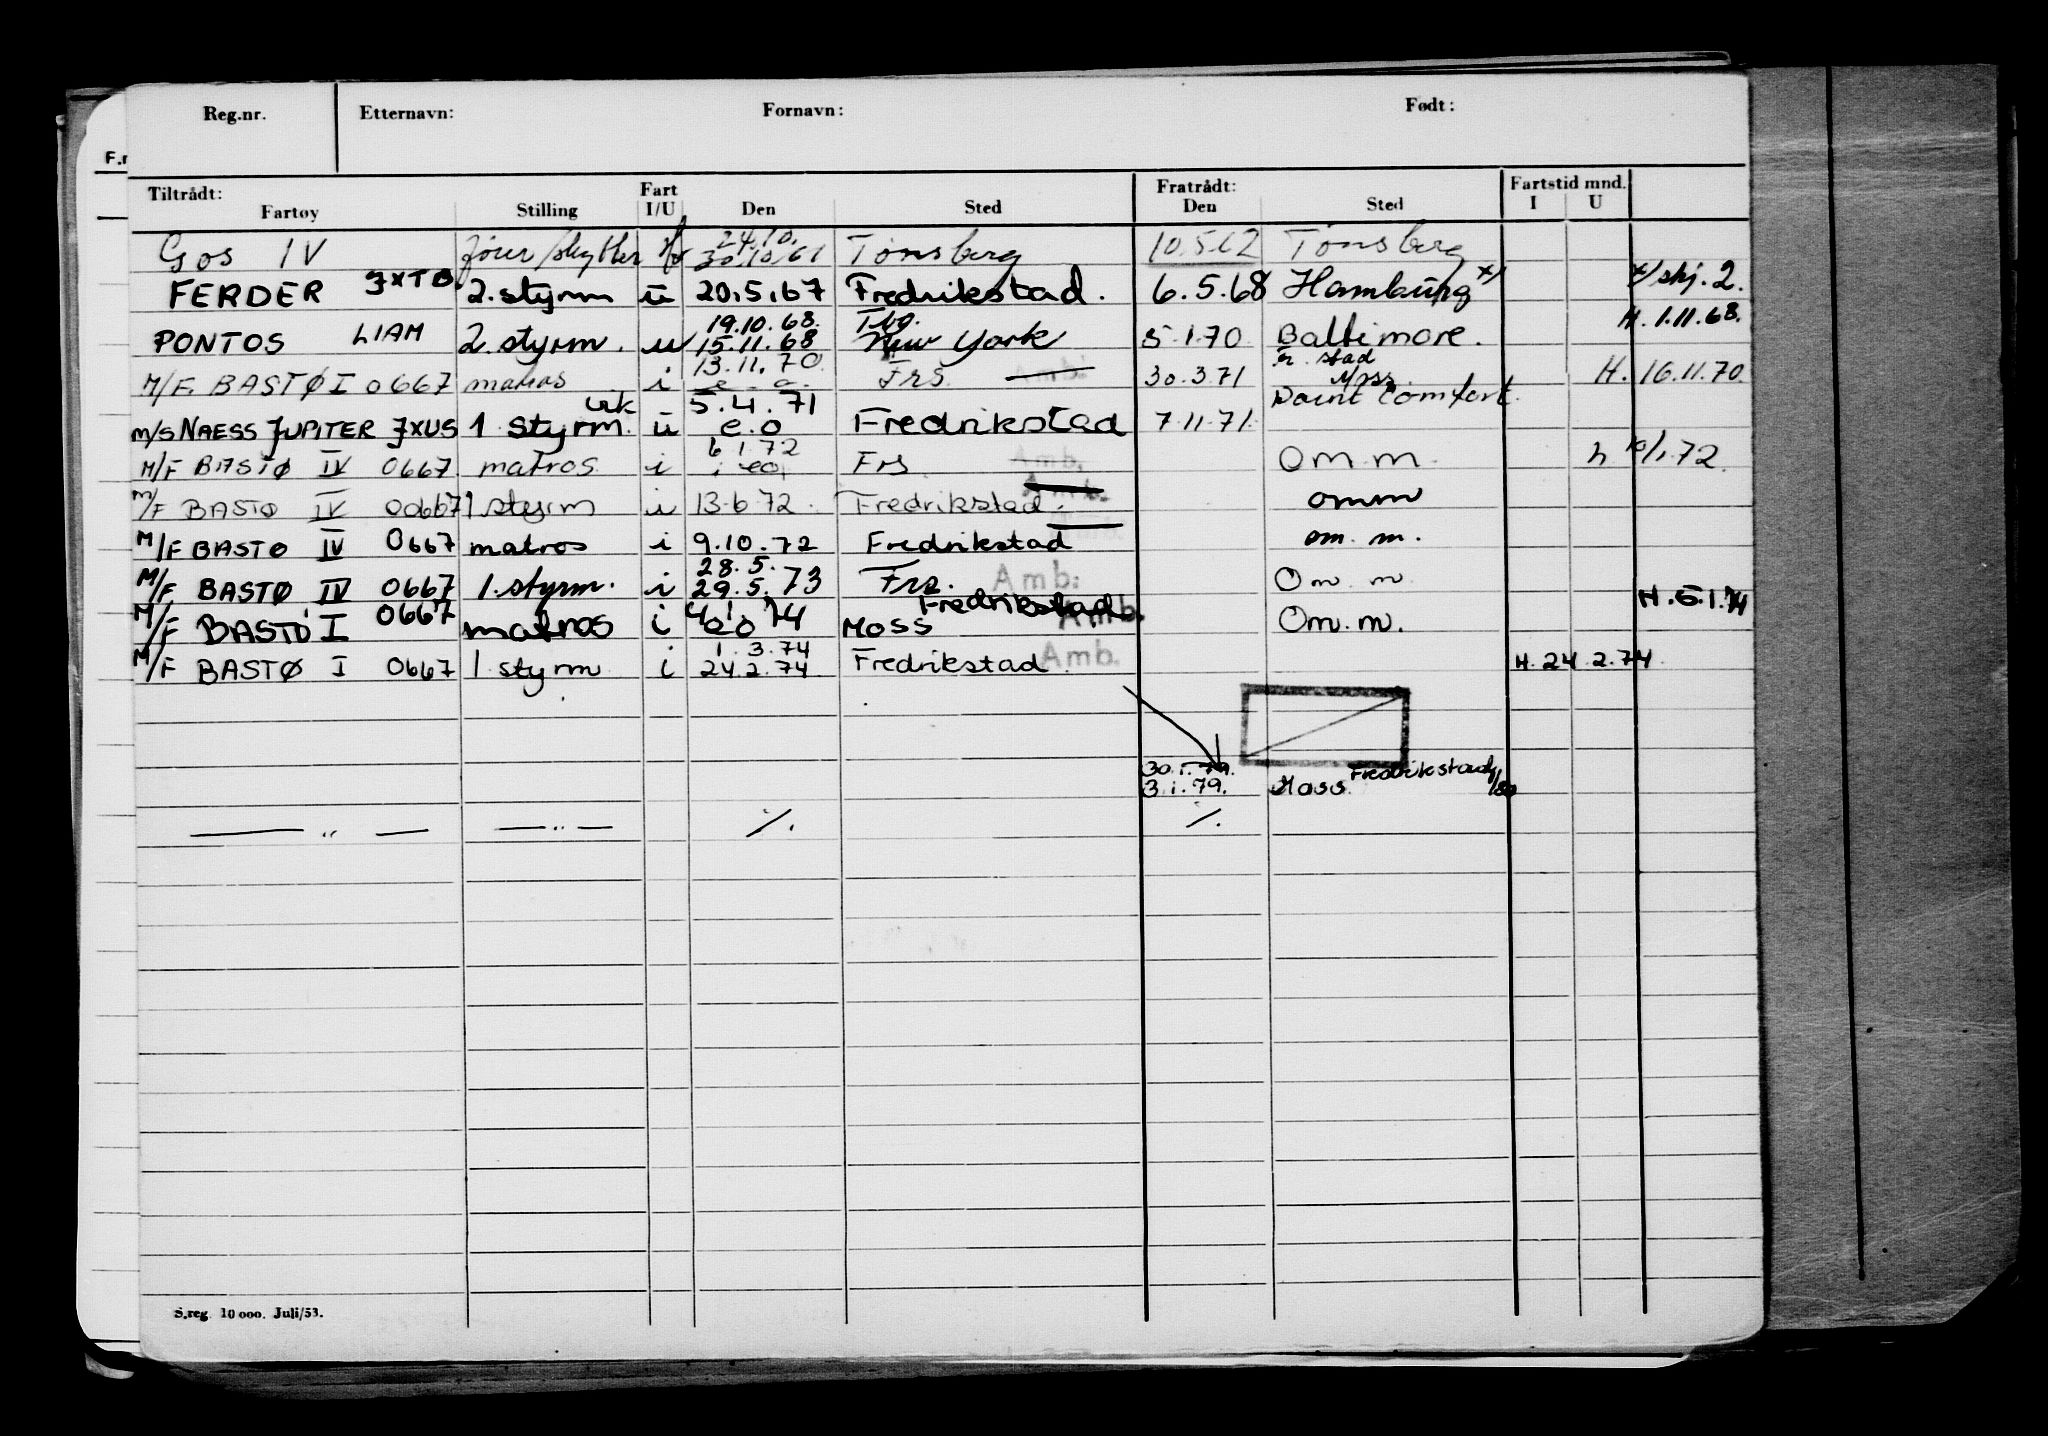 Reg.nr. Etternavn: Fornavn: Født:
F.r
Tiltrådt: Fart Fratrådt: Fartstid mnd.
Fartøy Stilling I/U Den Sted Den Sted I U
24.10.
Gos IV 30/10/61 Tønsberg 10.5.62 Tønsberg
FERDER JXTB 2. styrm u 20.5.67 Fredrikstad. 6.5.68 Hamburg x/ x/ skj. 2.
19.10.68. Tbg. H. 1.11.68.
PONTOS LIAM 2. styrm. u 15.11.68 New York 5.1.70 Baltimore.
13.11.70 fr. stad
M/F. BASTØ I 0667 matros i e. o. Frs. Amb. 30.3.71 Moss H. 16.11.70.
5.4.71 Point Comfort.
M/S NAESS JUPITER JXUS 1 styrm. u e.o Fredrikstad 7.11.71.
6 1.72
M/F BASTØ IV 0667 matros i Frs Amb. Om m h 10/1.72.
M/F BASTØ IV 00667 1 styrm i 13.6.72. Fredrikstad. Amb. omm
M/F BASTØ IV 0667 matros i 9.10.72 Fredrikstad om. m.
28.5.
M/F BASTØ IV 0667 1. styrm. i 29.5.73 Frs. Amb: Om. m
4.1.74 Fredrikstad H. 5.1.74
M/F BASTØ I 0667 matros i eo Moss Amb. Om. m.
1.3.74
M/F BASTØ I 0667 1. styrm i 24.2.74 Fredrikstad. Amb. H. 24.2.74.
30.1.79. Fredrikstad
3.1.79. Moss.
— " — — " — ./. ./.
S.reg. 10 000. Juli/53.